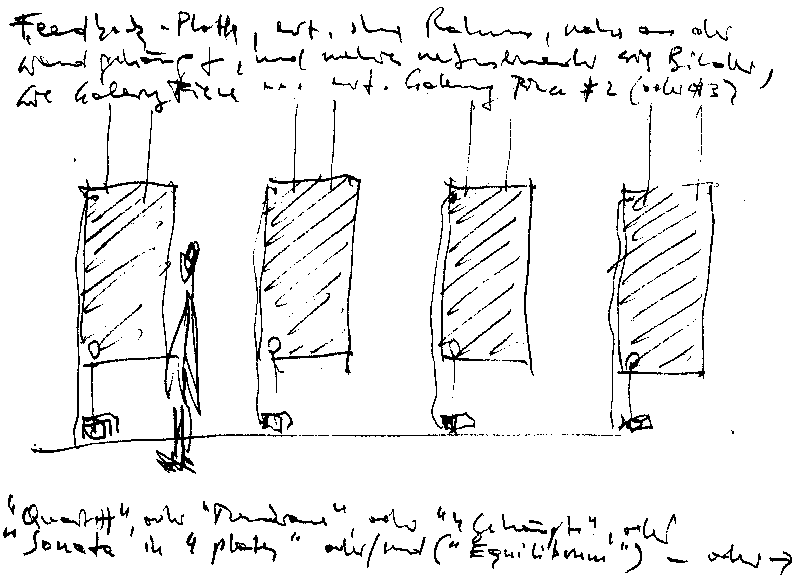 Feedback-Platte, evt. ohne Rahmen, nahe an der
Wand gehängt, und mehrere nebeneinander wie Bilder,
wie Gallery Piece ... evt. Gallery Piece #2 (oder #3)
"Quartett", oder " ", oder "4 Gehängte", oder
"Sonata in 4 plates" oder/und ("Equilibrium") – oder →